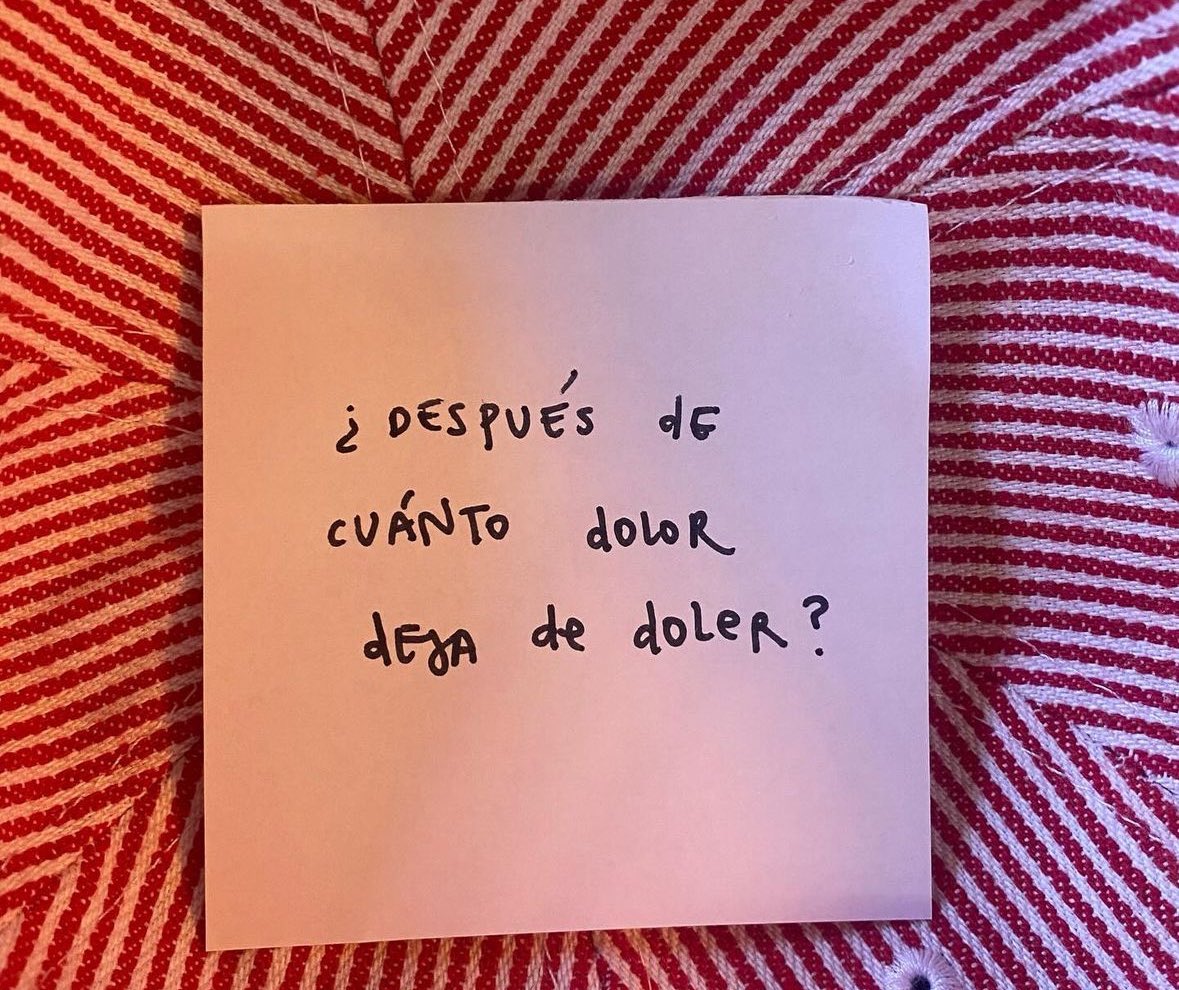 ¿DESPUÉS de
CUÁNTO dolOR
dEJA de dOLeR?